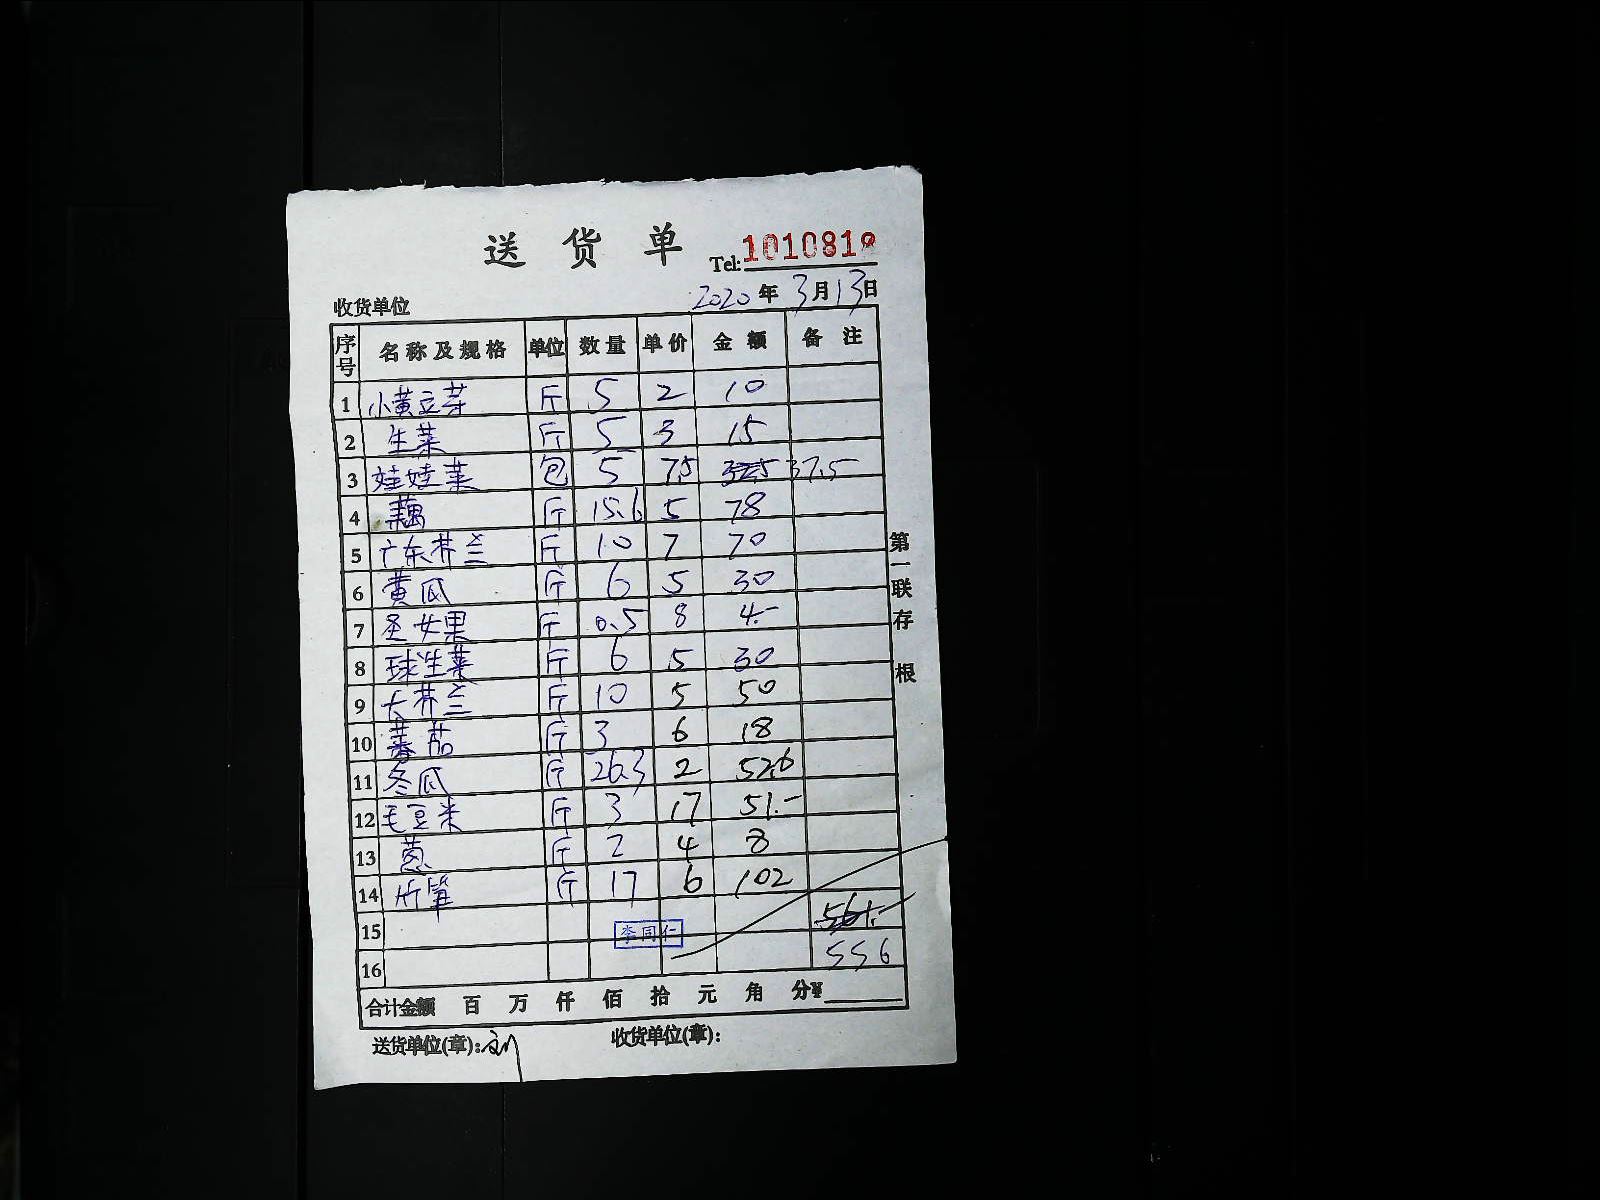 送货单
Tel: 1010818
收货单位 2020年3月13日
序号 名称及规格 单位 数量 单价 金额 备注
1 小黄豆芽 斤 5 2 10
2 生菜 斤 5 3 15
3 娃娃菜 包 5 7.5 37.5
4 藕 斤 15.6 5 78
5 广东芥兰 斤 10 7 70
6 黄瓜 斤 6 5 30
7 圣女果 斤 0.5 8 4.-
8 球生菜 斤 6 5 30
9 大芥兰 斤 10 5 50
10 蕃茄 斤 3 6 18
11 冬瓜 斤 26.3 2 52.6
12 毛豆米 斤 3 17 51.-
13 葱 斤 2 4 8
14 竹笋 斤 17 6 102
15 李同仁
16 556
合计金额 百 万 仟 佰 拾 元 角 分¥
送货单位(章): 收货单位(章):
第一联存根